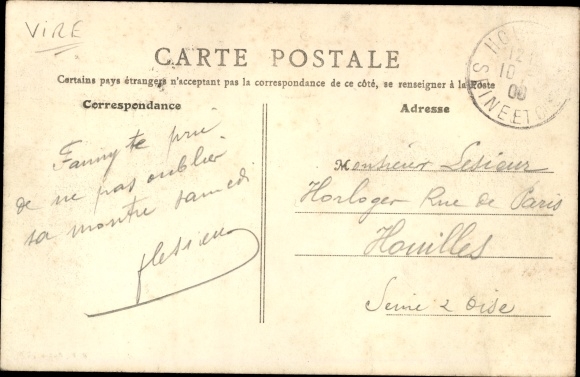 VIRE
CARTE POSTALE
Certains pays étrangers n'acceptant pas la correspondance de ce côté, se renseigner à la Poste
Correspondance
Fanny te prie
de ne pas oublier
sa montre samedi
Adresse
Monsieur Lesieur
Horloger Rue de Paris
Houilles
Seine & Oise
12
10
SEINE ET OISE